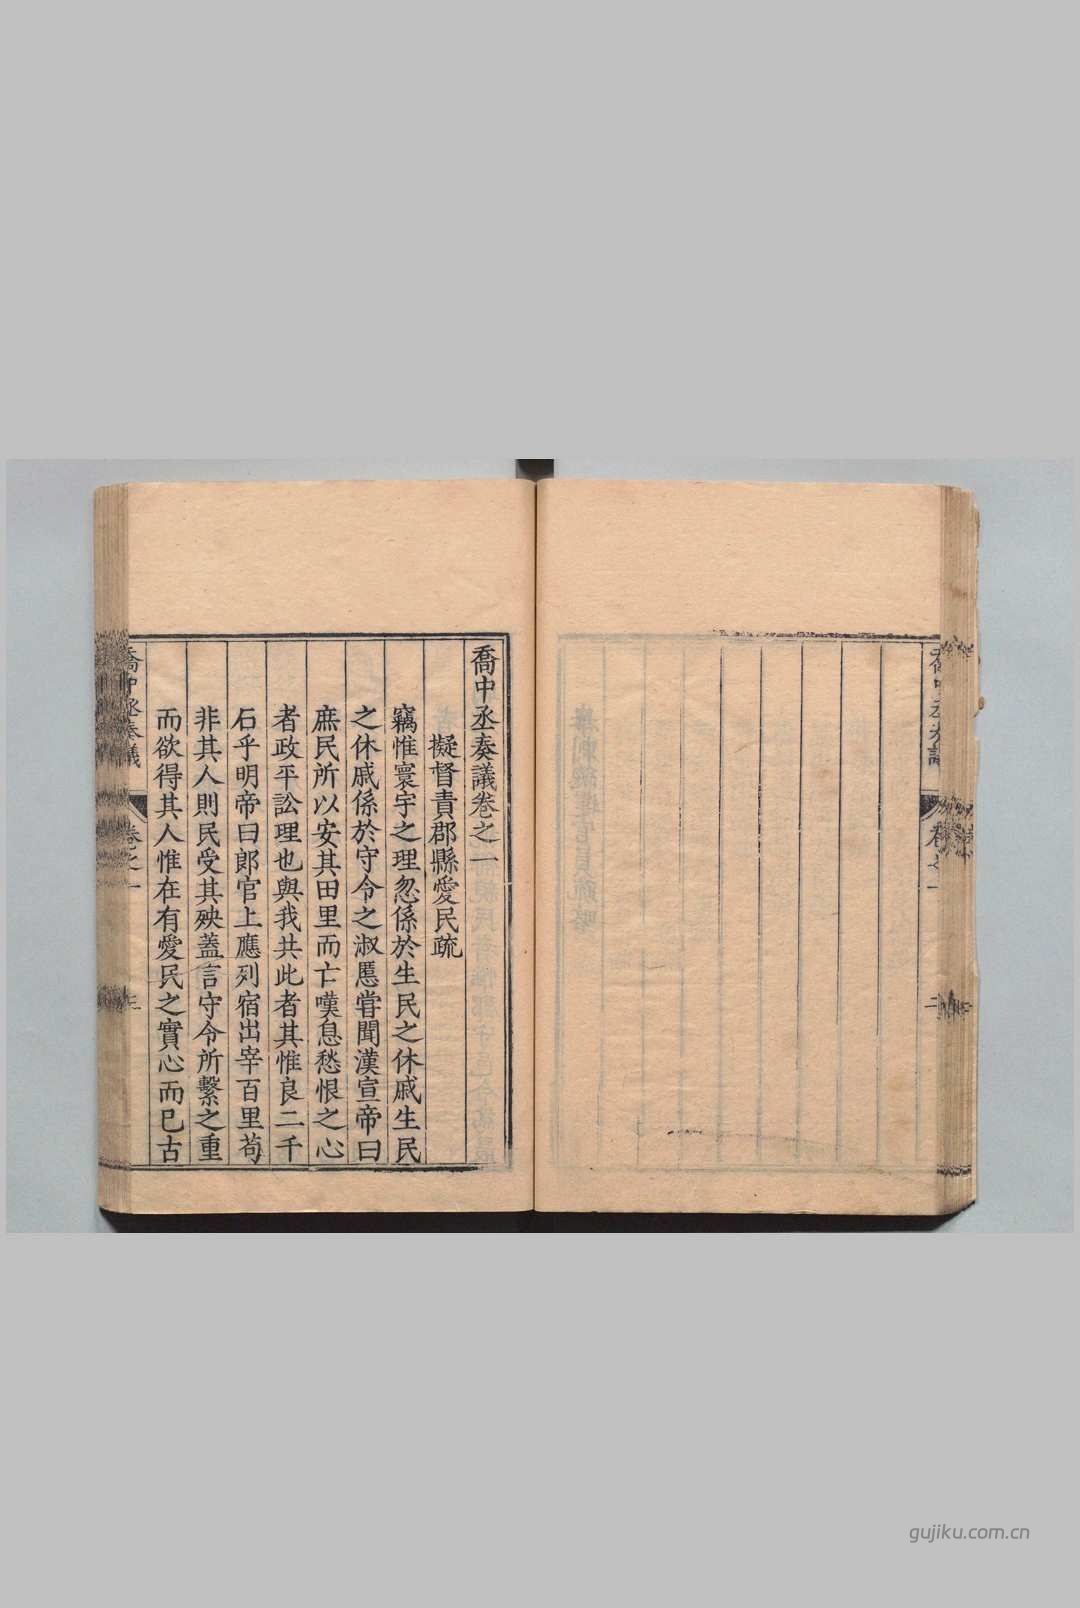 喬中丞奏議卷之一
擬督責郡縣愛民疏
竊惟寰宇之理忽係於生民之休戚生民
之休戚係於守令之淑慝嘗聞漢宣帝曰
庶民所以安其田里而亡嘆息愁恨之心
者政平訟理也與我共此者其惟良二千
石乎明帝曰郎官上應列宿出宰百里苟
非其人則民受其殃蓋言守令所繫之重
而欲得其人惟在有愛民之實心而已古
喬中丞奏議
卷之一
gujiku.com.cn